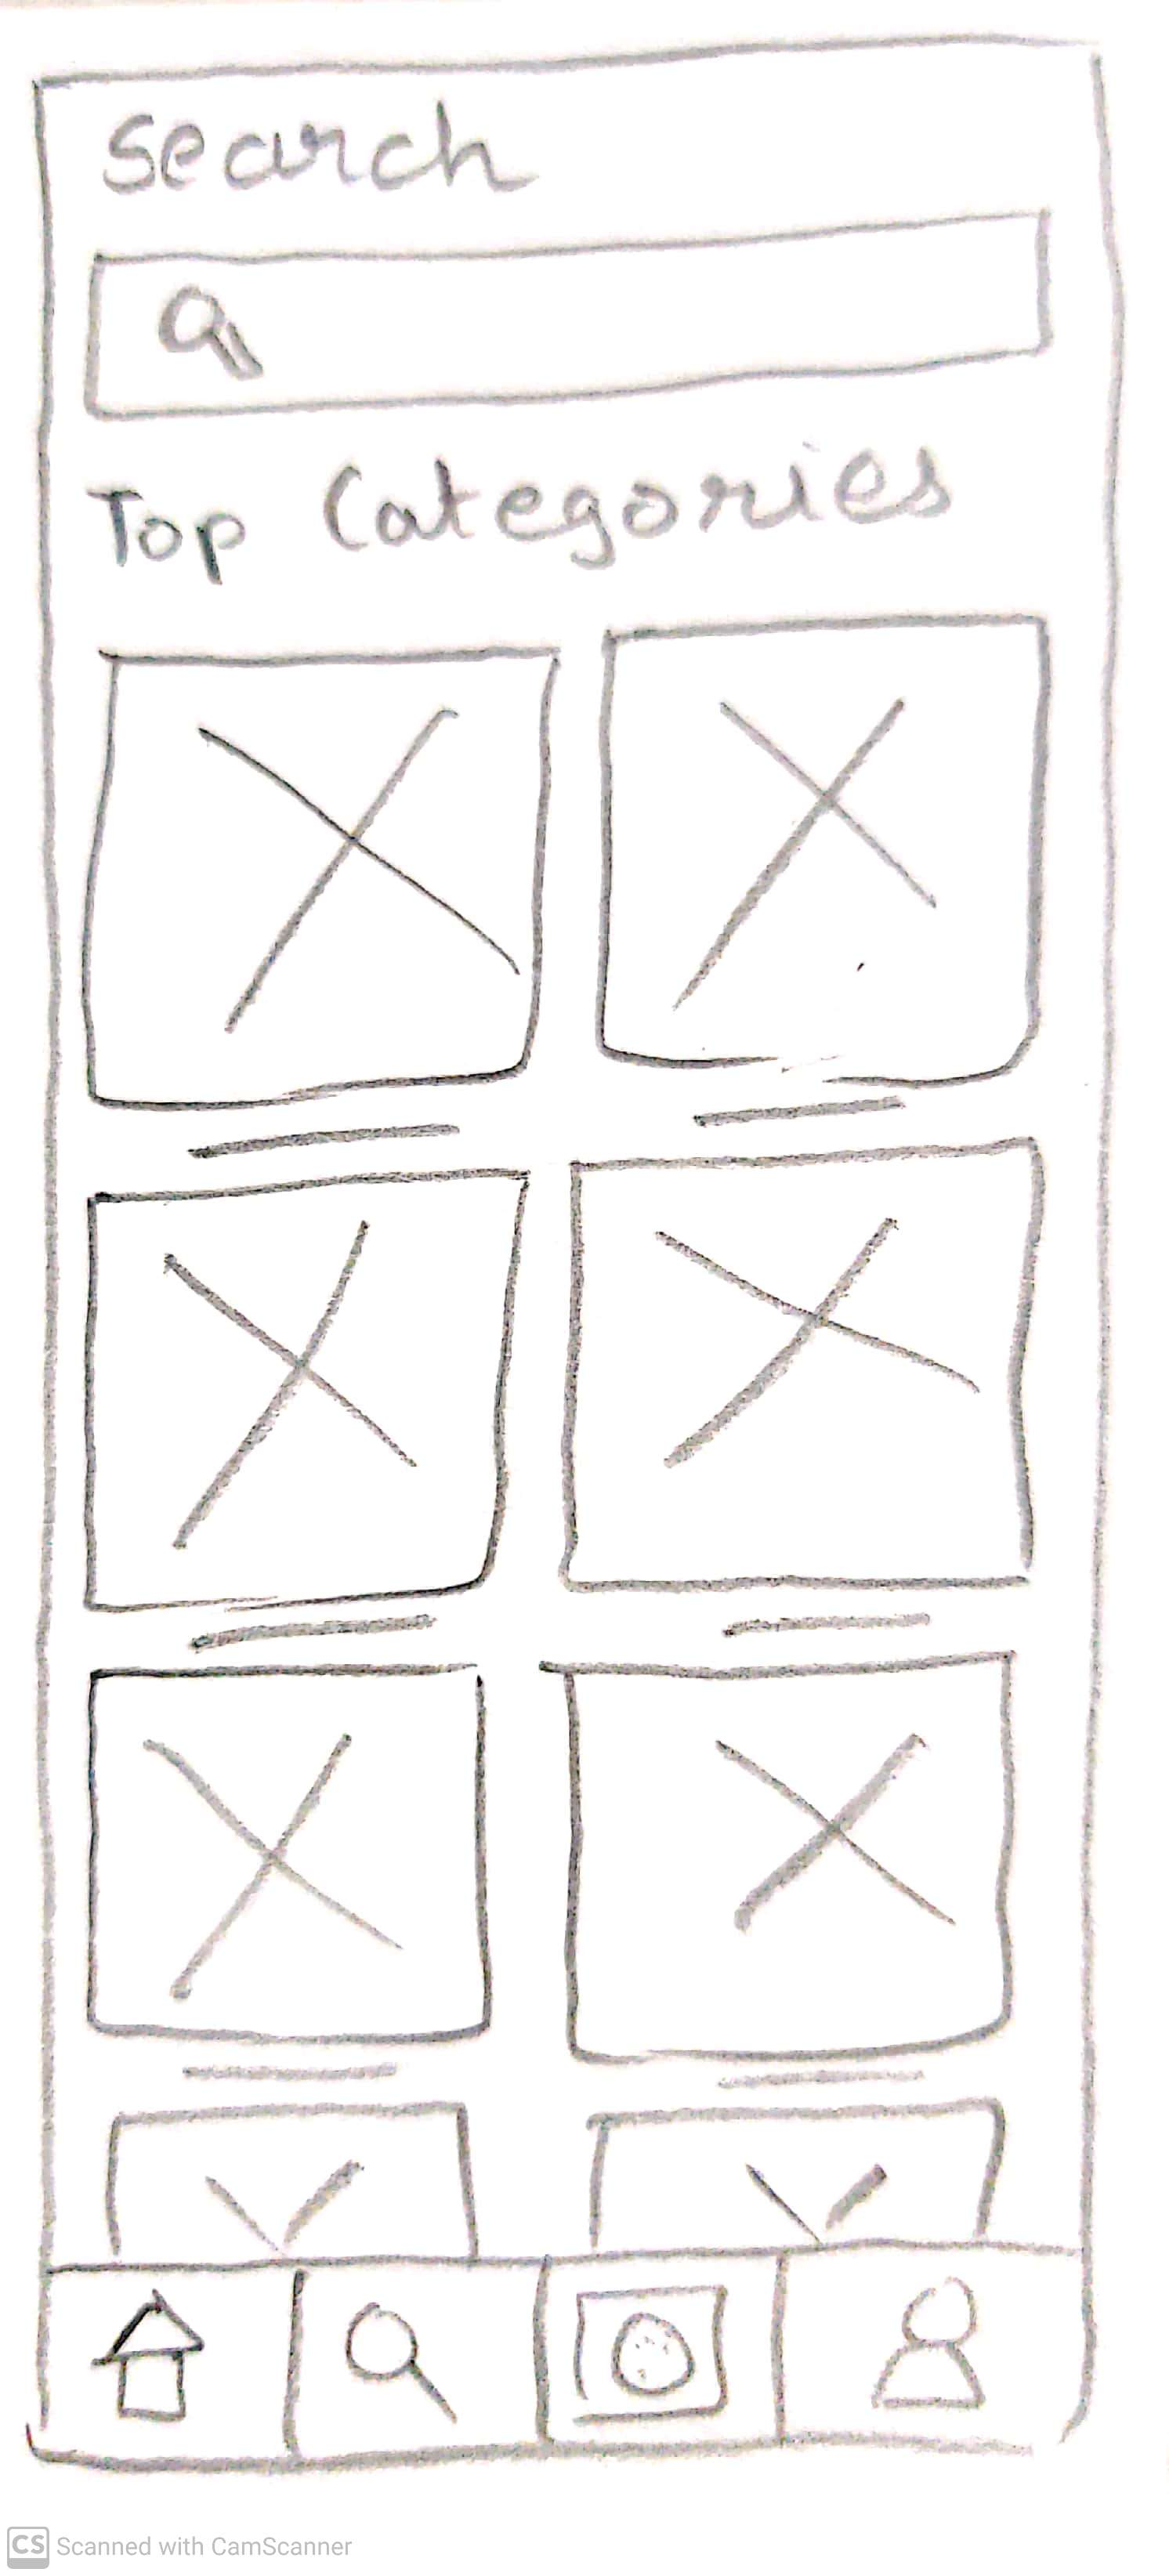 Search
Top Categories
CS Scanned with CamScanner